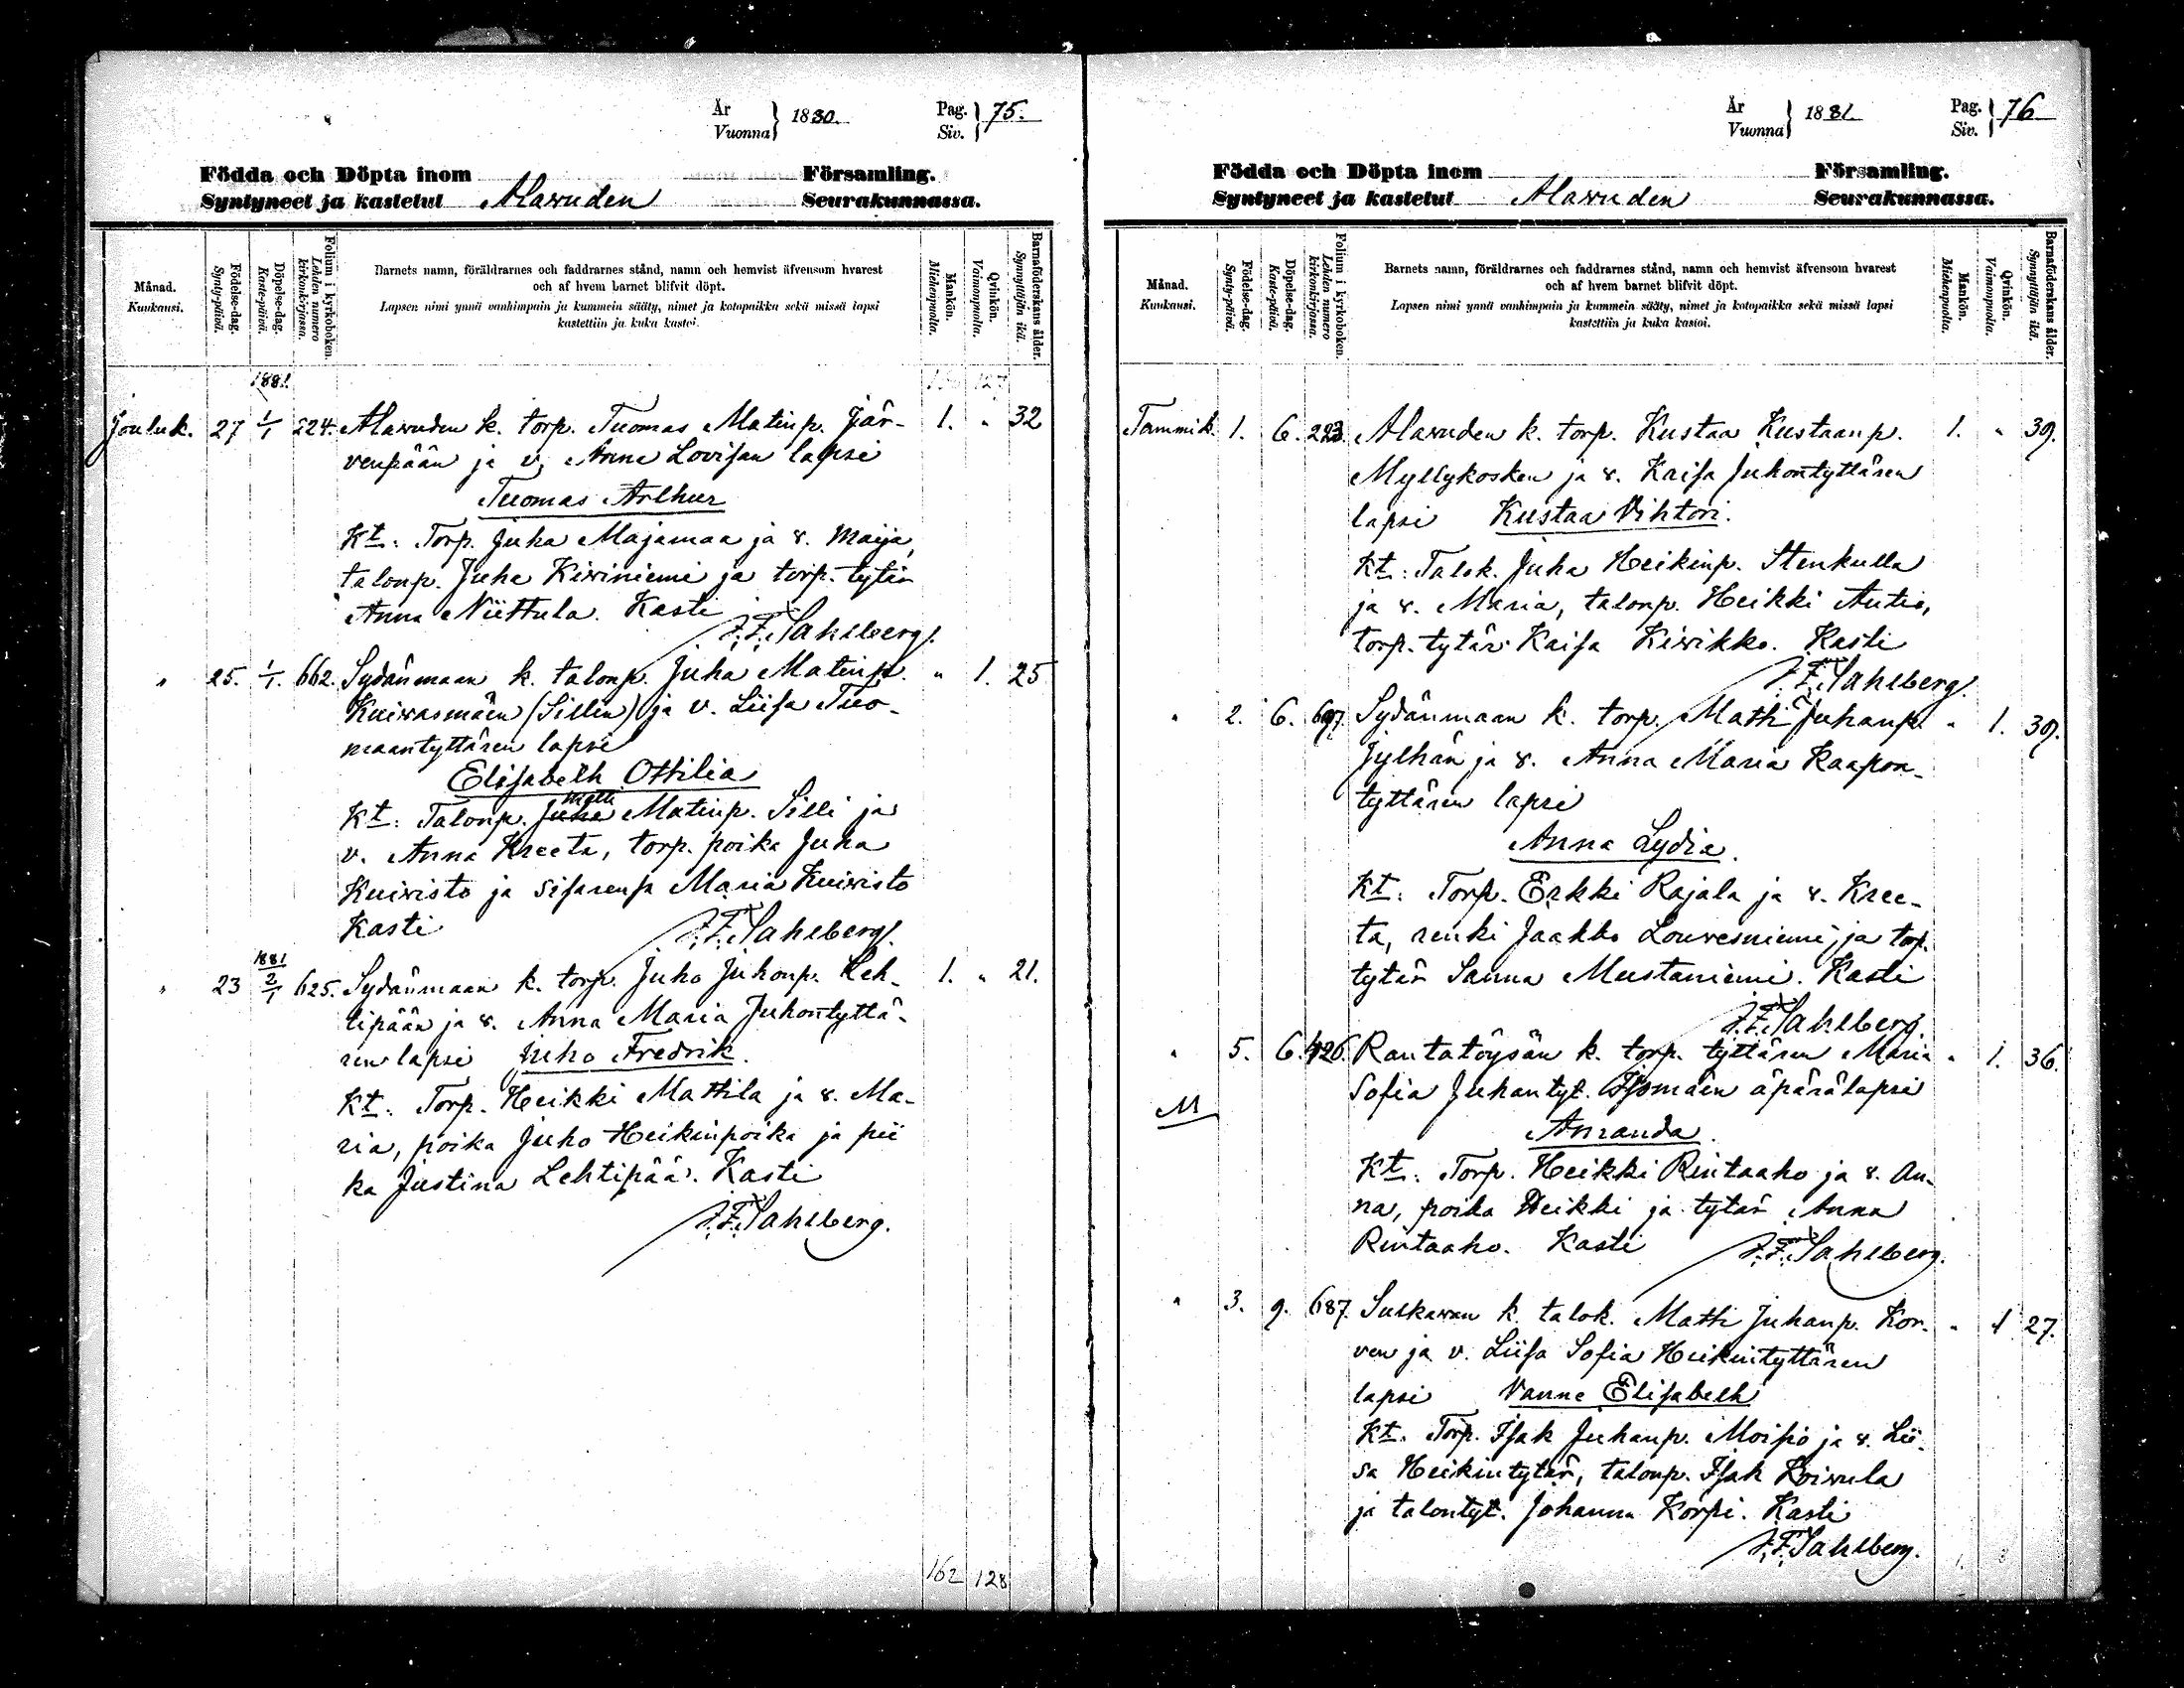 År
Vuonna } 1880. Pag.
Siv. } 75.
Födda och Döpta inom Församling.
Syntyneet ja kastetut Alavuden Seurakunnassa.
Månad.
Kuukausi.
Födelse-dag.
Synty-päivä.
Döpelse-dag.
Kaste-päivä.
Folium i kyrkoboken.
Lehden numero
kirkonkirjassa.
Barnets namn, föräldrarnes och faddrarnes stånd, namn och hemvist äfvensom hvarest
och af hvem barnet blifvit döpt.
Lapsen nimi ynnä vanhimpain ja kummein sääty, nimet ja kotopaikka sekä missä lapsi
kastettiin ja kuka kastoi.
Mankön.
Miehenpuolta.
Qvinkön.
Vaimonpuolta.
Barnaföderskans ålder.
Synnyttäjän ikä.
1881. 127
Jouluk. 27 1/1 224. Alavuden k. torp. Tuomas Matinp. Jär- 1. " 32
venpään ja v. Anna Lovisan lapsi
Tuomas Arthur
Kt: Torp. Juha Majamaa ja v. Maija,
talonp. Juha Kiviniemi ja torp. tytär
Anna Niittula. Kasti
J.F. Sahlberg.
" 25. 1/1. 662. Sydänmaan k. talonp. Juha Matinp. " 1. 25
Kuivasmäen (Sillin) ja v. Liisa Tuo-
maantyttären lapsi
Elisabeth Ottilia
Matti
Kt: Talonp. Juha Matinp. Silli ja
v. Anna Kreeta, torp. poika Juha
Kuivisto ja sisarensa Maria Kuivisto
Kasti J.F. Sahlberg.
1881
" 23 2/1 625. Sydänmaan k. torp. Juho Juhonp. Leh- 1. " 21.
tipään ja v. Anna Maria Juhontyttä-
ren lapsi Juho Fredrik.
Kt: Torp. Heikki Mattila ja v. Ma-
ria, poika Juho Heikinpoika ja pii
ka Justina Lehtipää. Kasti
J.F. Sahlberg.
162 128
År
Vuonna } 1881. Pag.
Siv. } 76
Födda och Döpta inom Församling.
Syntyneet ja kastetut Alavuden Seurakunnassa.
Månad.
Kuukausi.
Födelse-dag.
Synty-päivä.
Döpelse-dag.
Kaste-päivä.
Folium i kyrkoboken.
Lehden numero
kirkonkirjassa.
Barnets namn, föräldrarnes och faddrarnes stånd, namn och hemvist äfvensom hvarest
och af hvem barnet blifvit döpt.
Lapsen nimi ynnä vanhimpain ja kummein sääty, nimet ja kotopaikka sekä missä lapsi
kastettiin ja kuka kastoi.
Mankön.
Miehenpuolta.
Qvinkön.
Vaimonpuolta.
Barnaföderskans ålder.
Synnyttäjän ikä.
Tammik. 1. 6. 223. Alavuden k. torp. Kustaa Kustaanp. 1. " 39.
Myllykosken ja v. Kaisa Juhontyttären
lapsi Kustaa Vihtori.
Kt: Talok. Juha Heikinp. Stenkulla
ja v. Maria, talonp. Heikki Autio,
torp. tytär Kaisa Kivikko. Kasti
J.F. Sahlberg.
" 2. 6. 697. Sydänmaan k. torp. Matti Juhanp. " 1. 39.
Jylhän ja v. Anna Maria Kaapon-
tyttären lapsi
Anna Lydia.
Kt: Torp. Erkki Rajala ja v. Kree-
ta, renki Jaakko Louvesniemi ja torp.
tytär Sanna Mustaniemi. Kasti
J.F. Sahlberg.
" 5. 6. 426. Rantatöysän k. torp. tyttären Maria " 1. 36.
Sofia Juhantyt. äpärälapsi
M
Amanda.
Kt: Torp. Heikki Rintaaho ja v. An-
na, poika Heikki ja tytär Anna
Rintaaho. Kasti J.F. Sahlberg.
" 3. 9. 687. Sulkavan k. talok. Matti Juhanp. Kor- " 1 27.
ven ja v. Liisa Sofia Heikintyttären
lapsi Vanne Elisabeth
Kt: Torp. Isak Juhanp. Moisio ja v. Lii-
sa Heikintytär, talonp. Isak Koivula
ja talontyt. Johanna Korpi. Kasti
J.F. Sahlberg.